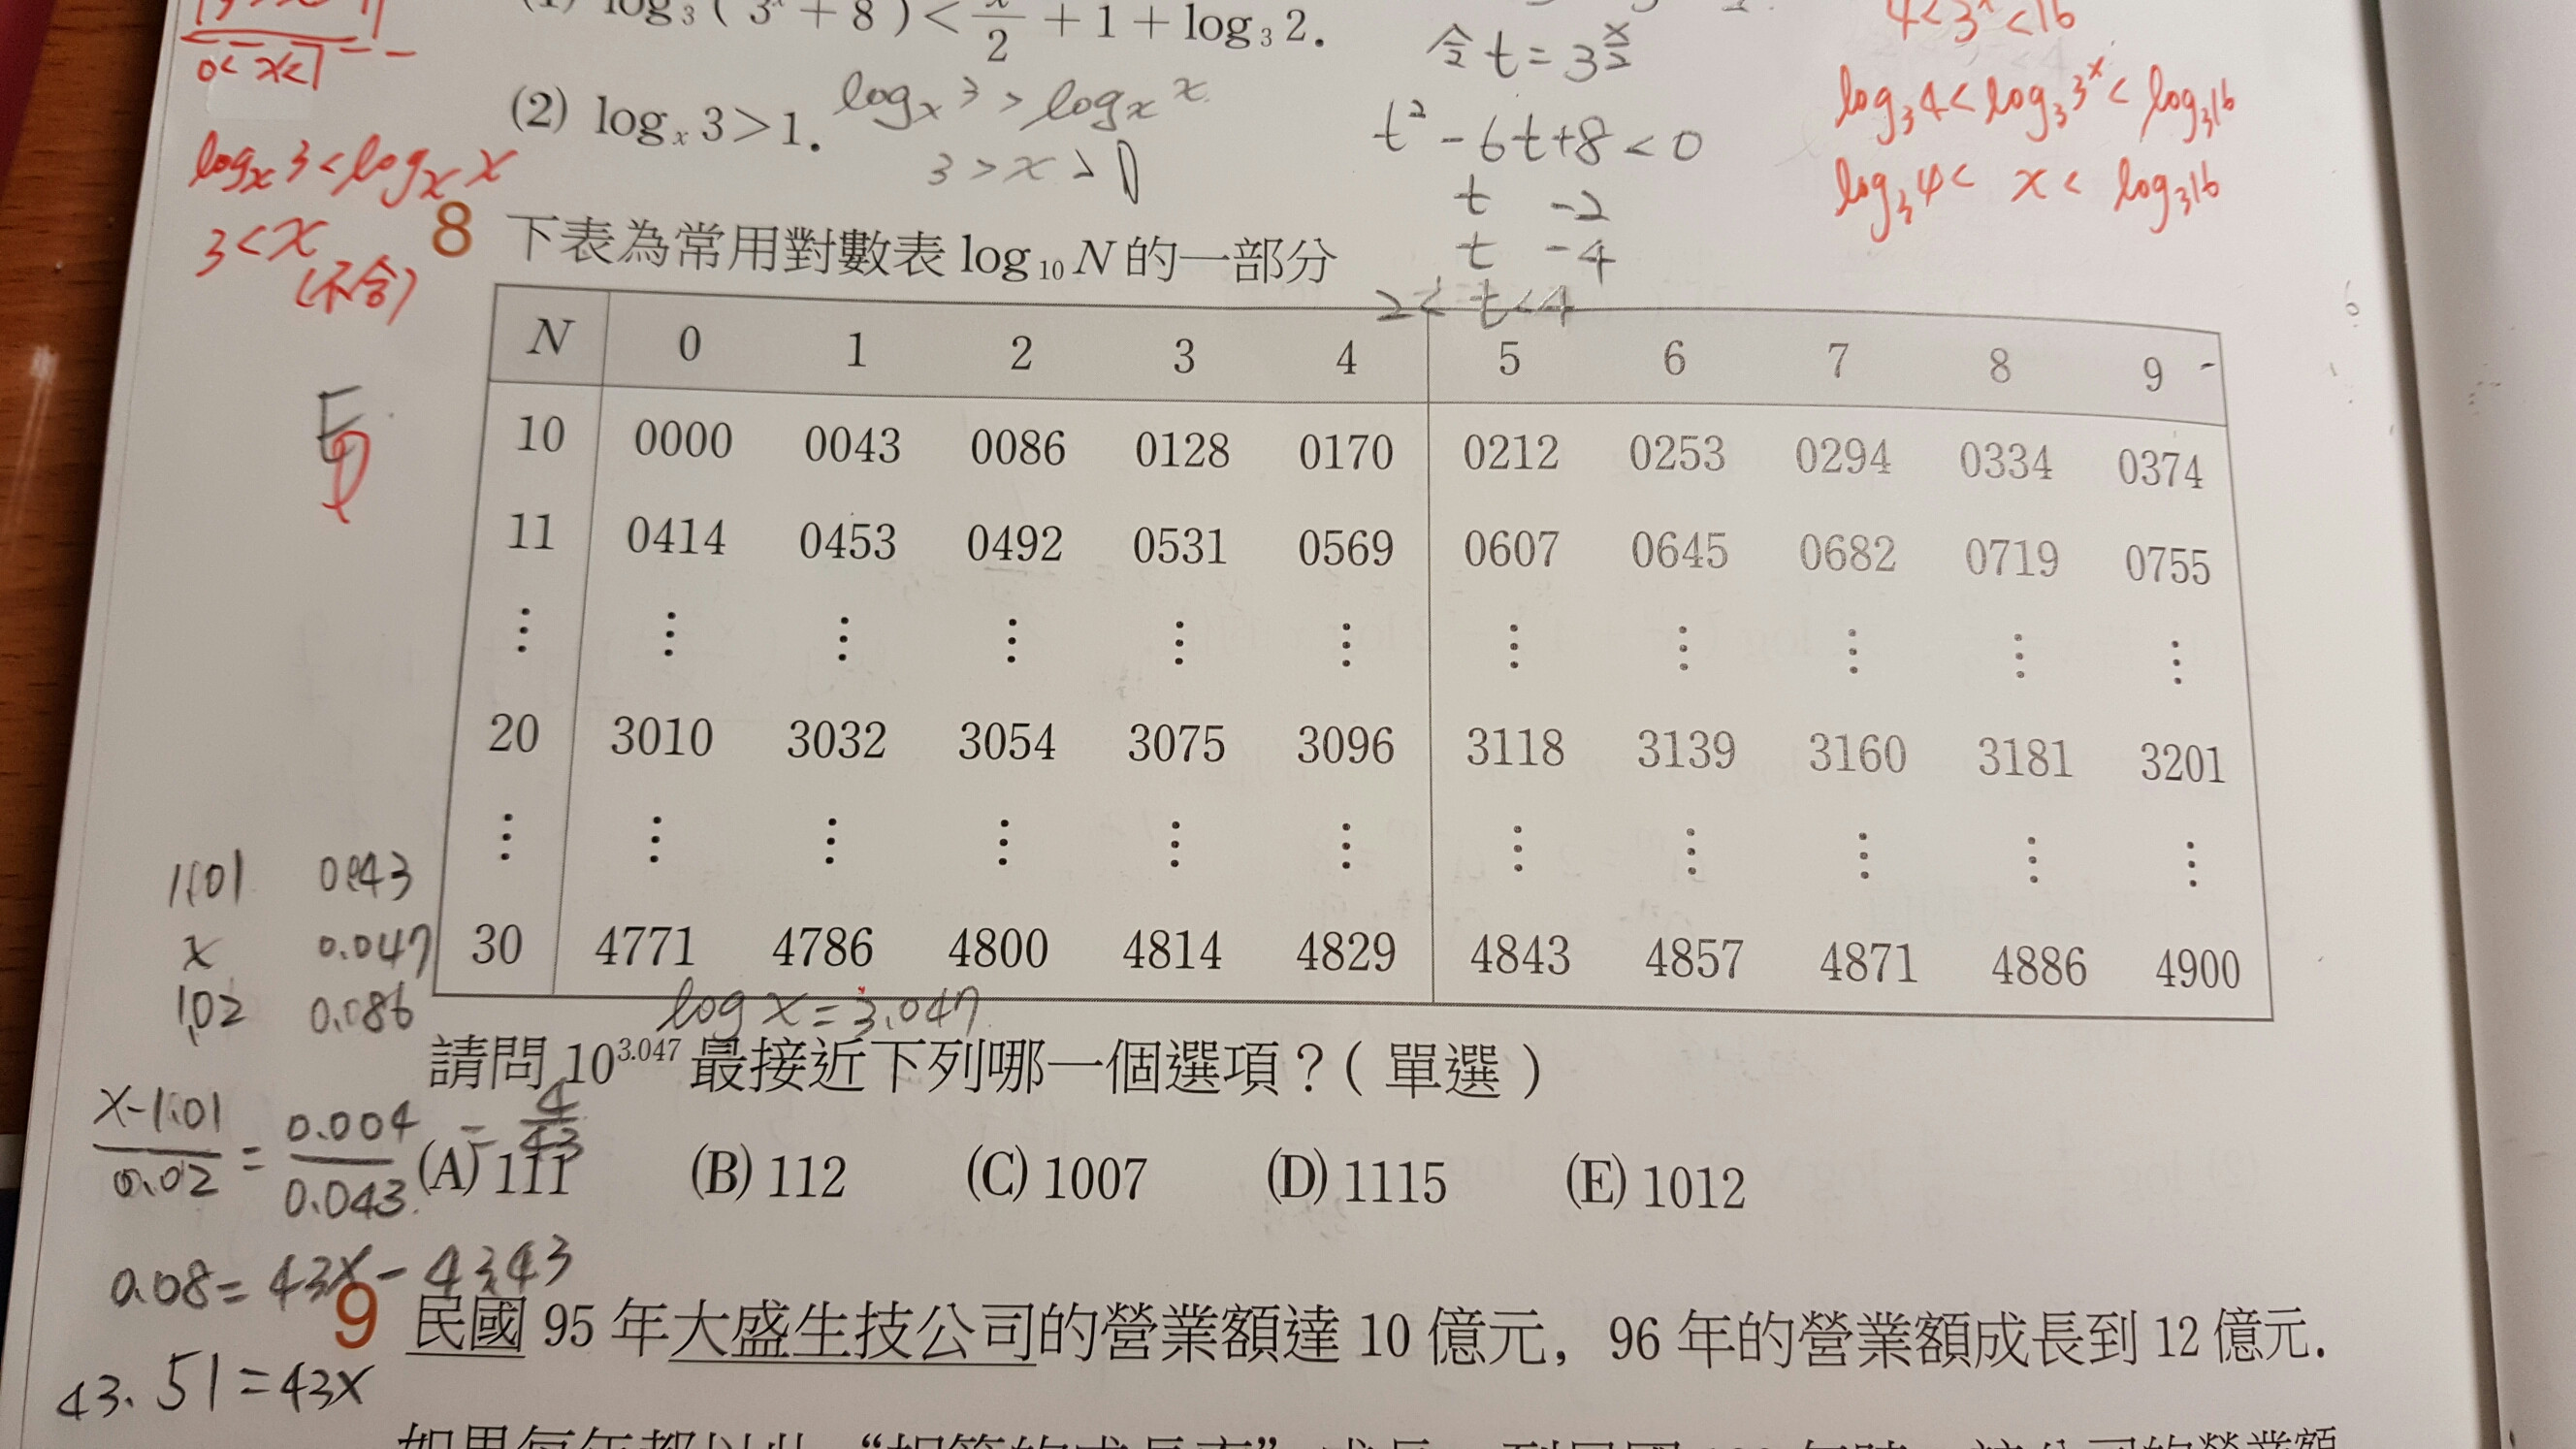 log₃(3ˣ+8)<x/2+1+log₃2.
(2) logₓ3>1.
logₓ3>logₓx
3>x>1
0<x<1
logₓ3<logₓx
3<x
(不合)
令t=3^(x/2)
t²-6t+8<0
t -2
t -4
2<t<4
4<3ˣ<16
log₃4<log₃3ˣ<log₃16
log₃4<x<log₃16
8 下表為常用對數表 log₁₀N 的一部分
N 0 1 2 3 4 5 6 7 8 9
10 0000 0043 0086 0128 0170 0212 0253 0294 0334 0374
11 0414 0453 0492 0531 0569 0607 0645 0682 0719 0755
⋮ ⋮ ⋮ ⋮ ⋮ ⋮ ⋮ ⋮ ⋮ ⋮ ⋮
20 3010 3032 3054 3075 3096 3118 3139 3160 3181 3201
⋮ ⋮ ⋮ ⋮ ⋮ ⋮ ⋮ ⋮ ⋮ ⋮ ⋮
30 4771 4786 4800 4814 4829 4843 4857 4871 4886 4900
1.01 0.043
x 0.047
1.02 0.086
log x=3.047
請問 10^3.047 最接近下列哪一個選項？(單選)
(x-1.01)/0.02=0.004/0.043=4/43
(A) 111 (B) 112 (C) 1007 (D) 1115 (E) 1012
0.08=43x-43.43
43.51=43x
9 民國 95 年大盛生技公司的營業額達 10 億元，96 年的營業額成長到 12 億元.